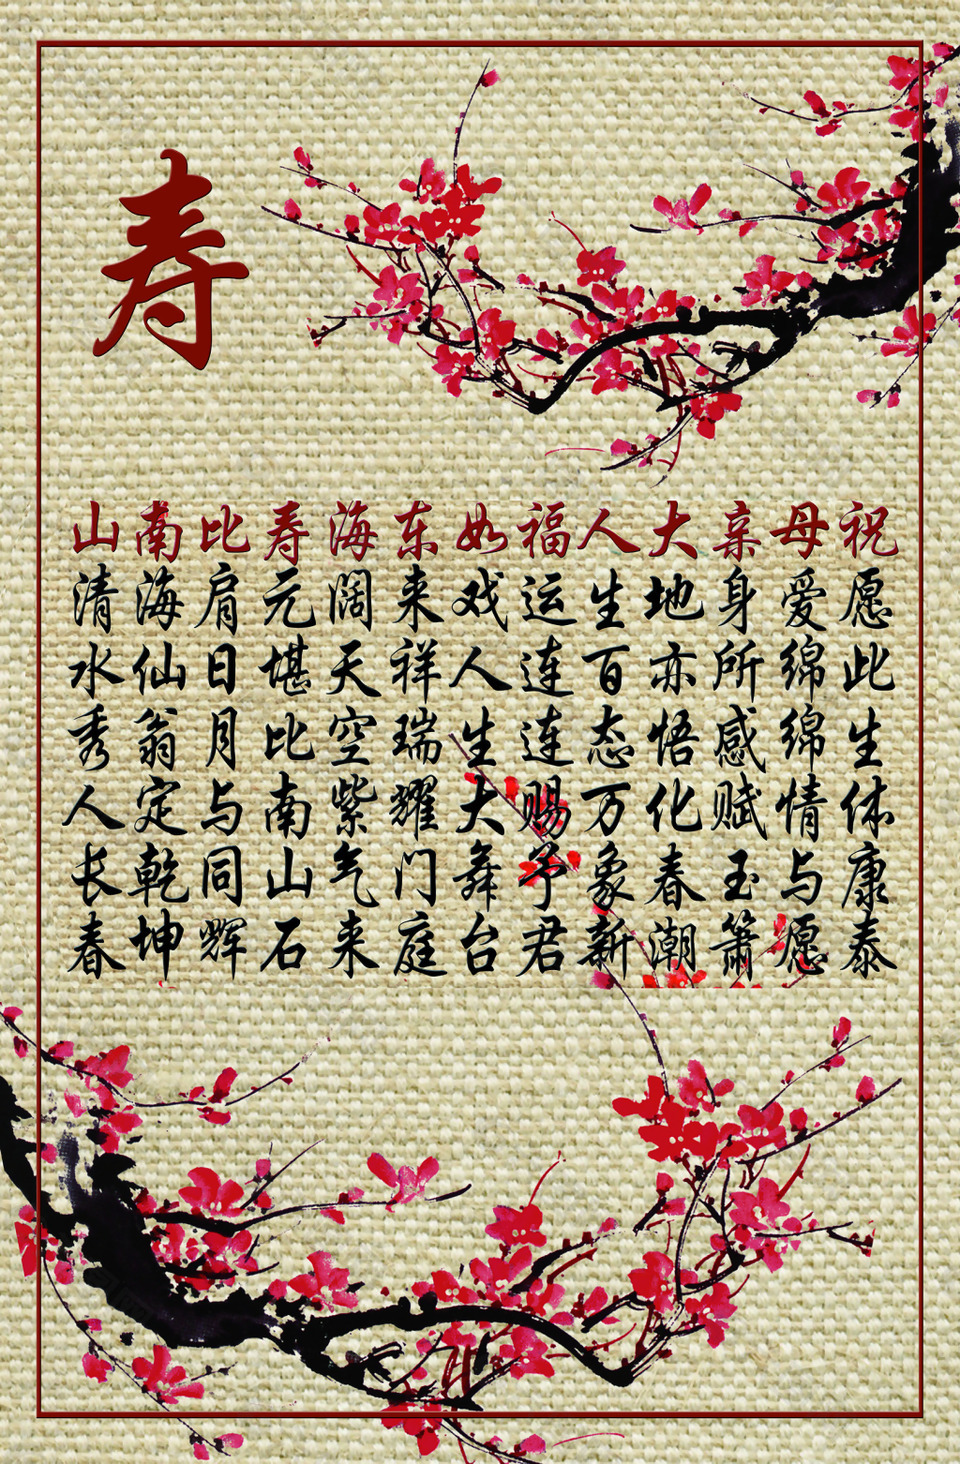 寿
祝愿此生体康泰
母爱绵绵情与愿
亲身所感赋玉箫
大地亦悟化春潮
人生百态万象新
福运连连赐予君
如戏人生大舞台
东来祥瑞耀门庭
海阔天空紫气来
寿元堪比南山石
比肩日月与同辉
南海仙翁定乾坤
山清水秀人长春